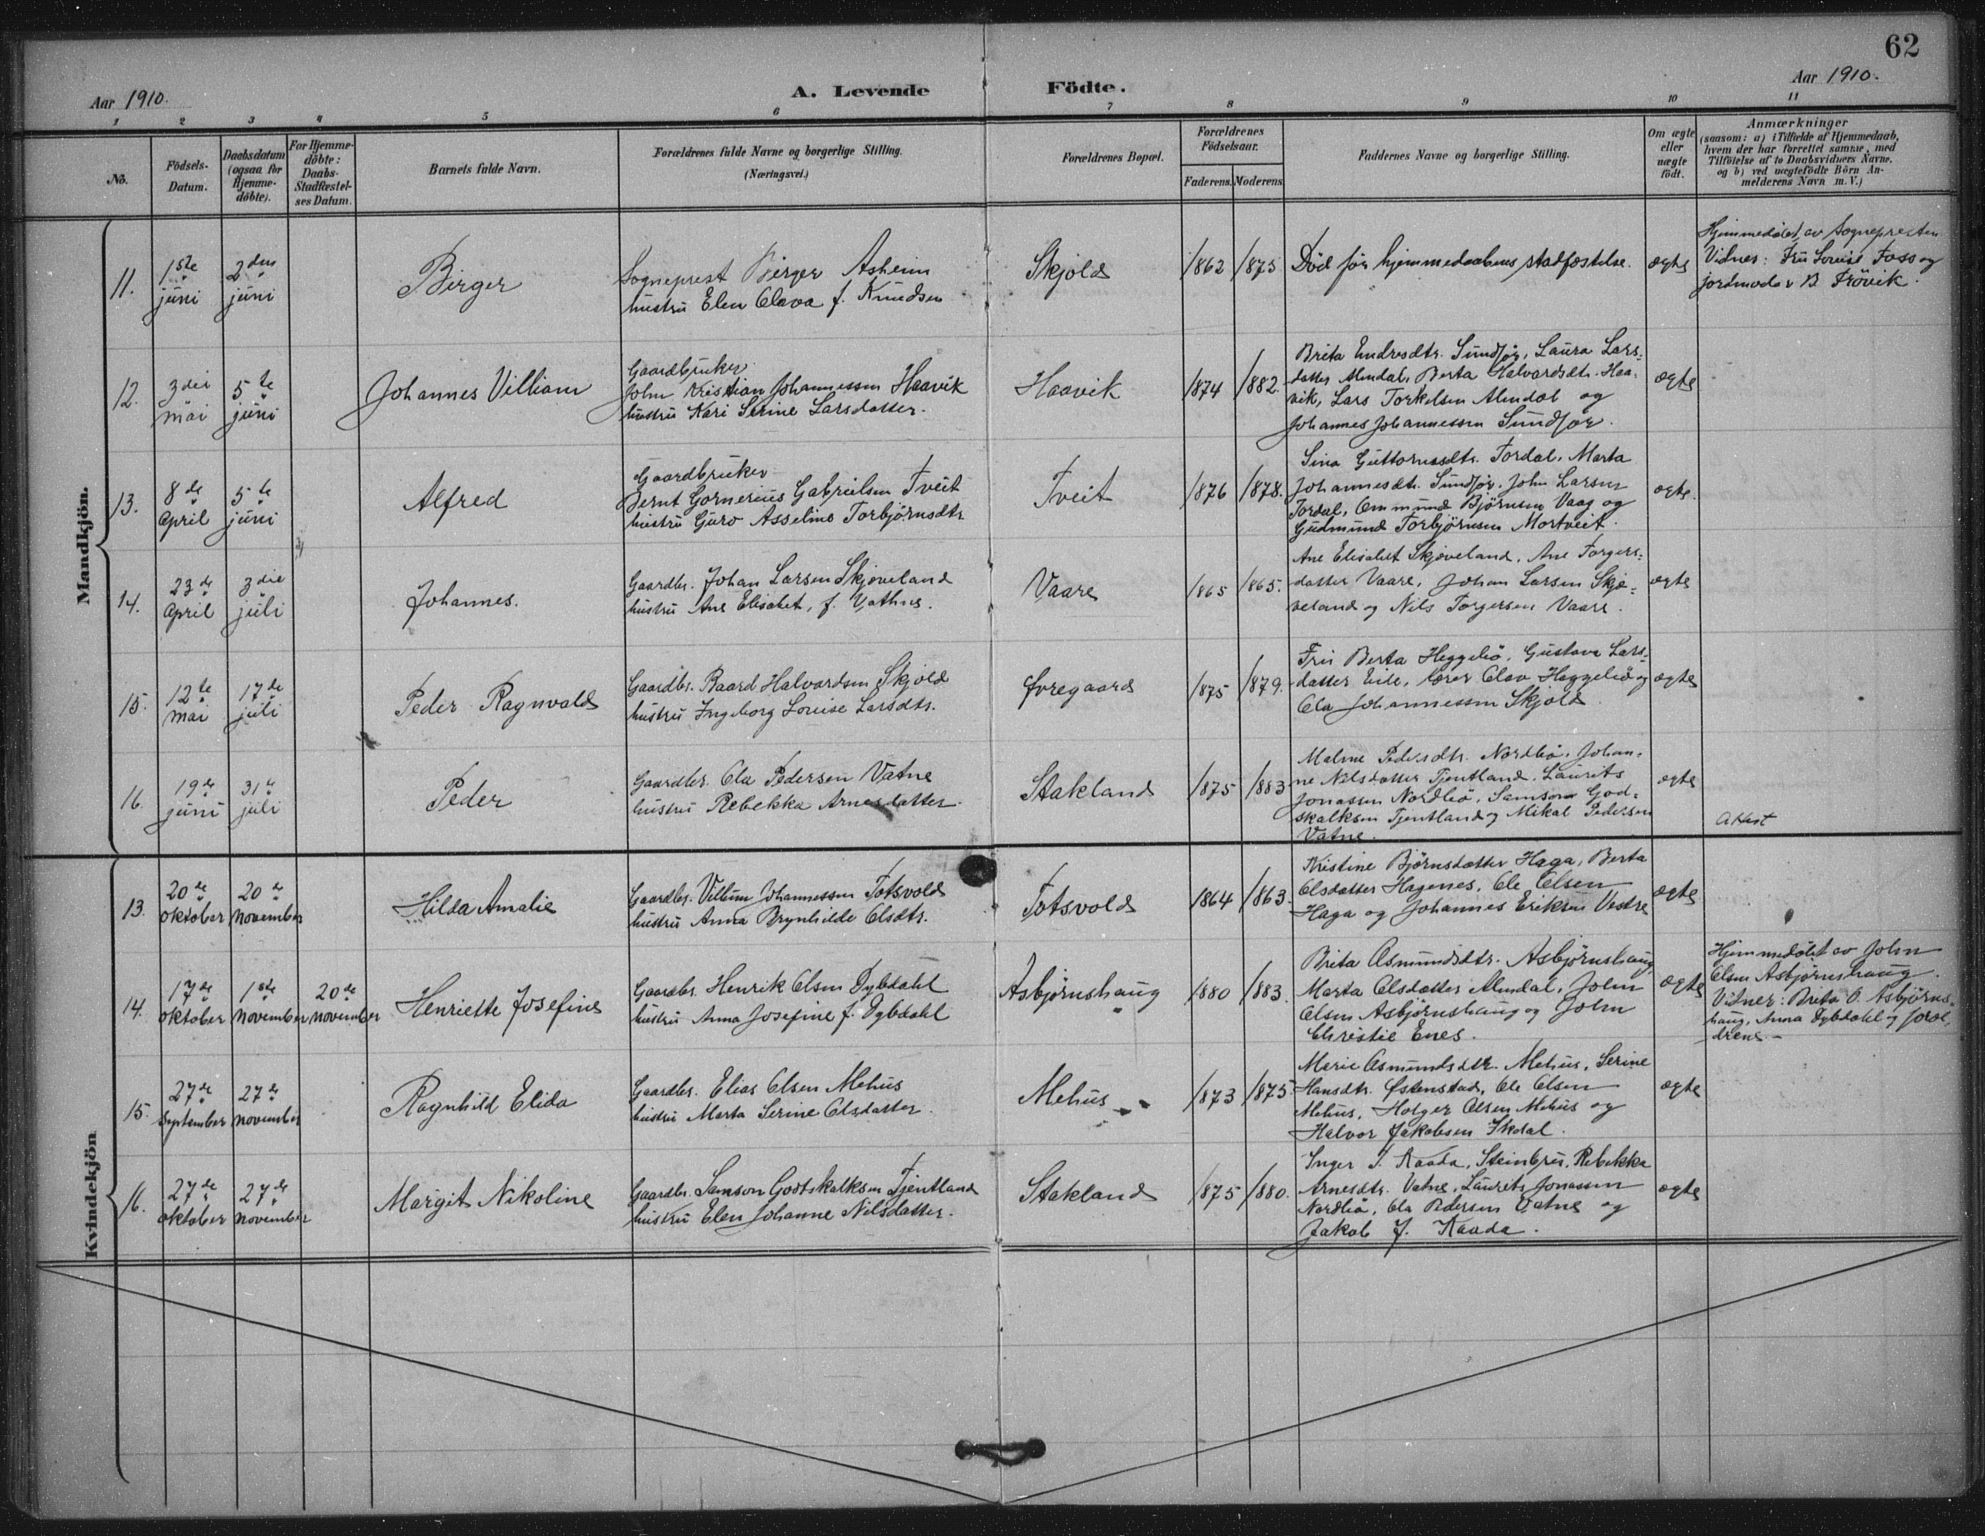 62
Aar 1910.
A. Levende Födte.
Aar 1910.
1 2 3 4 5 6 7 8 9 10 11
No.
Födsels-
Datum.
Daabsdatum
(ogsaa for
Hjemme-
döbte).
For Hjemme-
döbte:
Daabs-
Stadfæstel-
ses Datum.
Barnets fulde Navn.
Forældrenes fulde Navne og borgerlige Stilling.
(Næringsvei.)
Forældrenes Bopæl.
Forældrenes
Födselsaar.
Faderens. Moderens.
Faddernes Navne og borgerlige Stilling.
Om ægte
eller
uægte
födt.
Anmærkninger
(saasom: a) i Tilfælde af Hjemmedaab,
hvem der har forrettet samme, med
Tilföielse af to Daabsvidners Navne,
og b) ved uægtefödte Börn An-
melderens Navn m. V.)
Mandkjön.
11.
1ste
juni
2den
juni
Birger
Sogneprest Birger Asheim
hustru Elen Olava f. Knudsen
Skjold
1862 1875
Død før hjemmedaabens stadfæstelse.
ægte
Hjemmedøbt av Sognepresten
Vidner: Fru Louise Foss og
jordmoder B Frövik.
12.
3die
mai
5te
juni
Johannes Villiam
Gaardbruker
John Kristian Johannessen Haavik
hustru Kari Serine Larsdatter.
Haavik
1874 1882.
Brita Endresdtr. Sundfør, Laura Lars-
datter Alendal, Berta Halvardsdtr. Haa-
vik, Lars Torkelsen Alendal og
Johannes Johannessen Sundfør.
ægte
13.
8de
April
5te
juni
Alfred
Gaardbruker
Bernt Gornerius Gabrielsen Tveit
hustru Guro Asseline Torbjørnsdtr
Tveit
1876 1878.
Sina Guttormsdtr. Tordal, Marta
Johannesdtr. Sundfør, John Larsen
Tordal, Ommund Bjørnsen Vaag og
Gudmund Torbjørnsen Mortveit.
ægte.
14.
23de
April
3die
juli
Johannes.
Gaardbr. Johan Larsen Skjøveland
hustru Ane Elisabet, f. Vathne.
Vaare
1865 1865.
Ane Elisabet Skjøveland, Ane Torgers-
datter Vaare, Johan Larsen Skjø-
veland og Nils Torgersen Vaare.
ægte
15.
12te
mai
17de
juli
Peder Ragnvald
Gaardbr. Baard Halvardsen Skjold
hustru Ingeborg Louise Larsdtr.
Øvregaard
1875 1879.
Fru Berta Heggebø, Gustava Lars-
datter Eide, lærer Olav Heggebø og
Ola Johannessen Skjold.
ægte
16.
19de
juni
31te
juli
Peder
Gaardbr. Ola Pedersen Vatne
hustru Rebekka Arnesdatter.
Stakland
1875 1883
Malene Pedersdtr. Nordbø, Johan-
ne Nilsdatter Tjentland, Laurits
Jonassen Nordbø, Samson God-
skalksen Tjentland og Mikal Pedersen
Vatne.
ægte
Attest
Kvindekjön
13.
20de
oktober
20de
november
Hilda Amalie
Gaardbr. Villum Johannessen Totsvold
hustru Anna Brynhilde Olsdtr.
Totsvold
1864 1863.
Kristine Bjørnsdatter Haga, Berta
Olsdatter Hagenes, Ole Olsen
Haga og Johannes Eriksen Vestre
ægte
14.
17de
oktober
1ste
november
20de
november
Henriette Josefine
Gaardbr. Henrik Olsen Dybdahl
hustru Anna Josefine f. Dybdahl
Asbjørnshaug
1880 1883.
Brita Osmundsdtr. Asbjørnshaug
Marta Olsdatter Alendal, John
Olsen Asbjørnshaug og John
Christie Enes.
ægte
Hjemmedøbt av John
Olsen Asbjørnshaug.
Vidner: Brita O. Asbjørns-
haug, Anna Dybdahl og foræl-
drene.
15.
27de
September
27de
november
Ragnhild Elida
Gaardbr. Elias Olsen Mehus
hustru Marta Serine Olsdatter.
Mehus
1873 1875
Marie Osmundsdtr. Mehus, Serine
Hansdtr. Østenstad, Ole Olsen
Mehus, Holger Olsen Mehus og
Halvor Jakobsen
ægte
16.
27de
oktober
27de
november
Margit Nikoline
Gaardbr. Samson Godtskalksen Tjentland
hustru Elen Johanne Nilsdatter.
Stakland
1875 1880.
Inger J. Kaada, Steinbru, Rebekka
Arnesdtr. Vatne, Laurits Jonassen
Nordbø, Ola Pedersen Vatne og
Jakob J. Kaada.
ægte